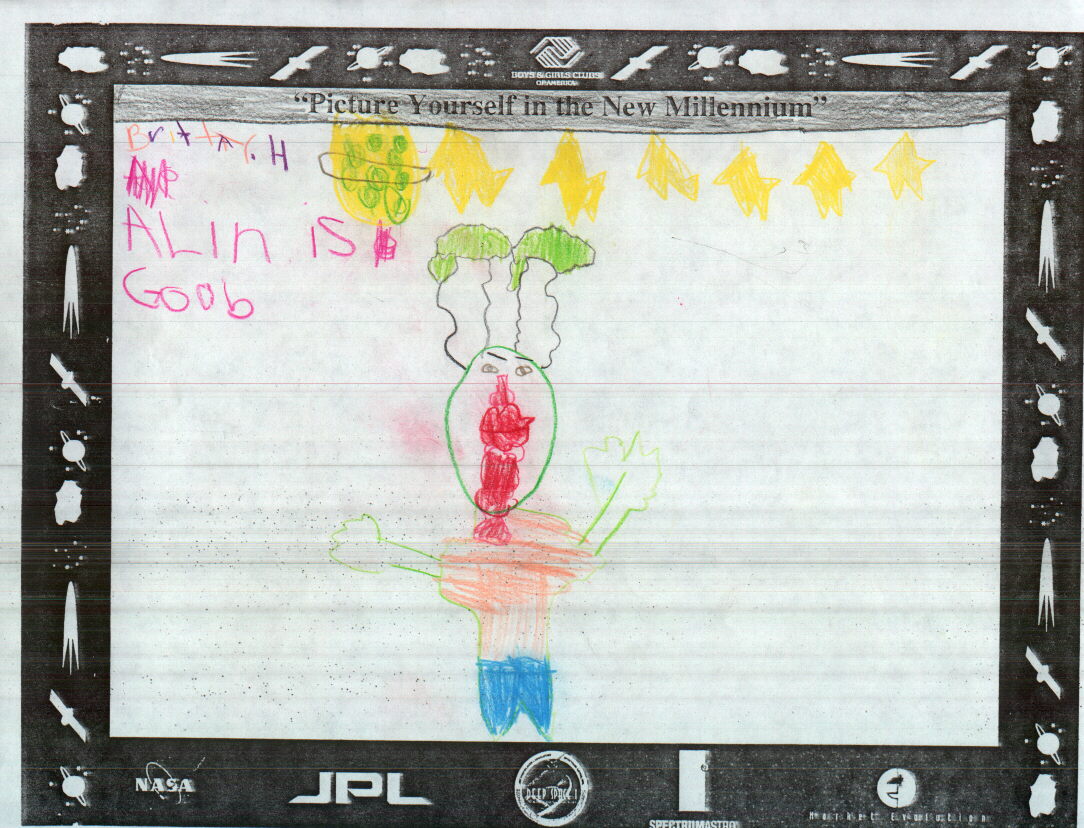 BOYS & GIRLS CLUBS
OF AMERICA
“Picture Yourself in the New Millennium”
BrittAY. H
ALin iS
Goob
NASA
JPL
DEEP SPACE 1
SPECTRUMASTRO
Market Evolution